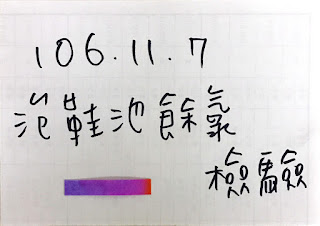 106.11.7
泡鞋池餘氯
檢驗